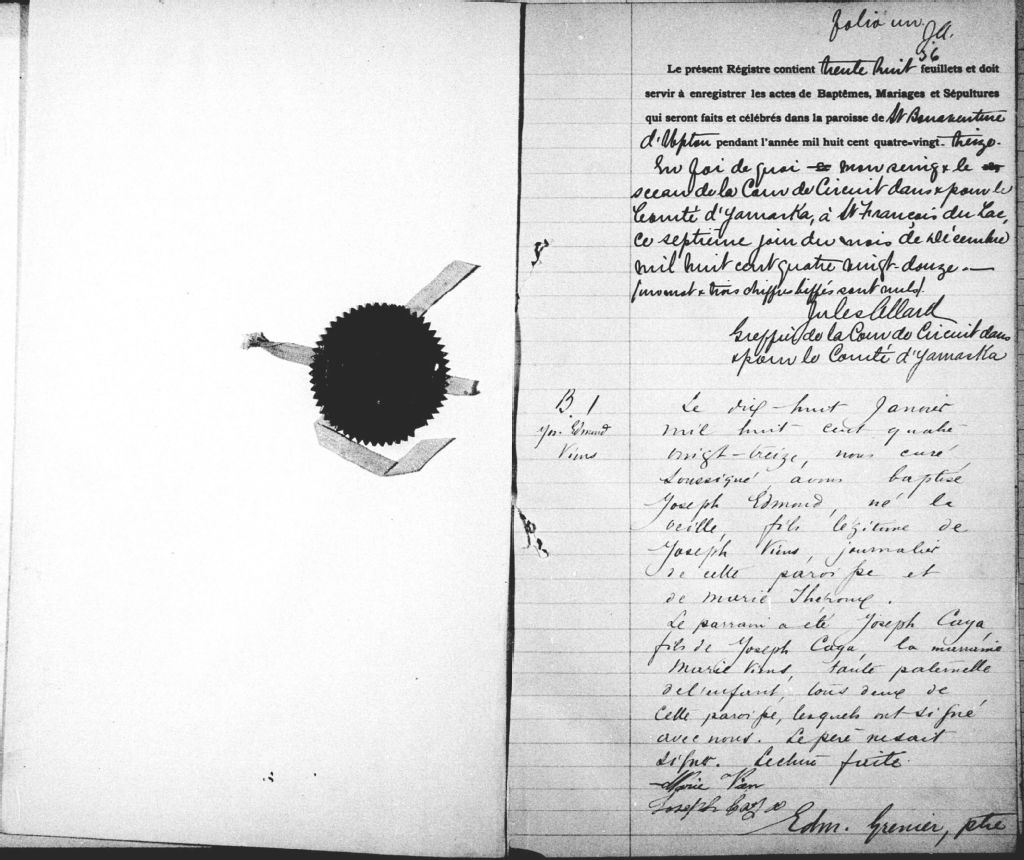 folio un
J.A.
36
Le présent Régistre contient trente huit feuillets et doit
servir à enregistrer les actes de Baptêmes, Mariages et Sépultures
qui seront faits et célébrés dans la paroisse de St Bonaventure
d'Upton pendant l'année mil huit cent quatre-vingt- treize.
En foi de quoi mon seing & le
sceau de la Cour de Circuit dans & pour le
Comté d'Yamaska, à St François du Lac,
ce septième jour du mois de Décembre
mil huit cent quatre vingt-douze.—
(un mot & trois chiffres biffés sont nuls).
Jules Allard
Greffier de la Cour de Circuit dans
& pour le Comté d'Yamaska
B. 1
Jos. Edmond
Viens
Le dix-huit Janvier
mil huit cent quatre
vingt-treize, nous curé
soussigné, avons baptisé
Joseph Edmond, né la
veille, fils légitime de
Joseph Viens, journalier
de cette paroisse et
de Marie Théroux.
Le parrain a été Joseph Caya,
fils de Joseph Caya, la marraine
Marie Viens, tante paternelle
de l'enfant, tous deux de
cette paroisse, lesquels ont signé
avec nous. Le père ne sait
signer. Lecture faite.
Marie Vien
Joseph
Edm. Grenier, ptre